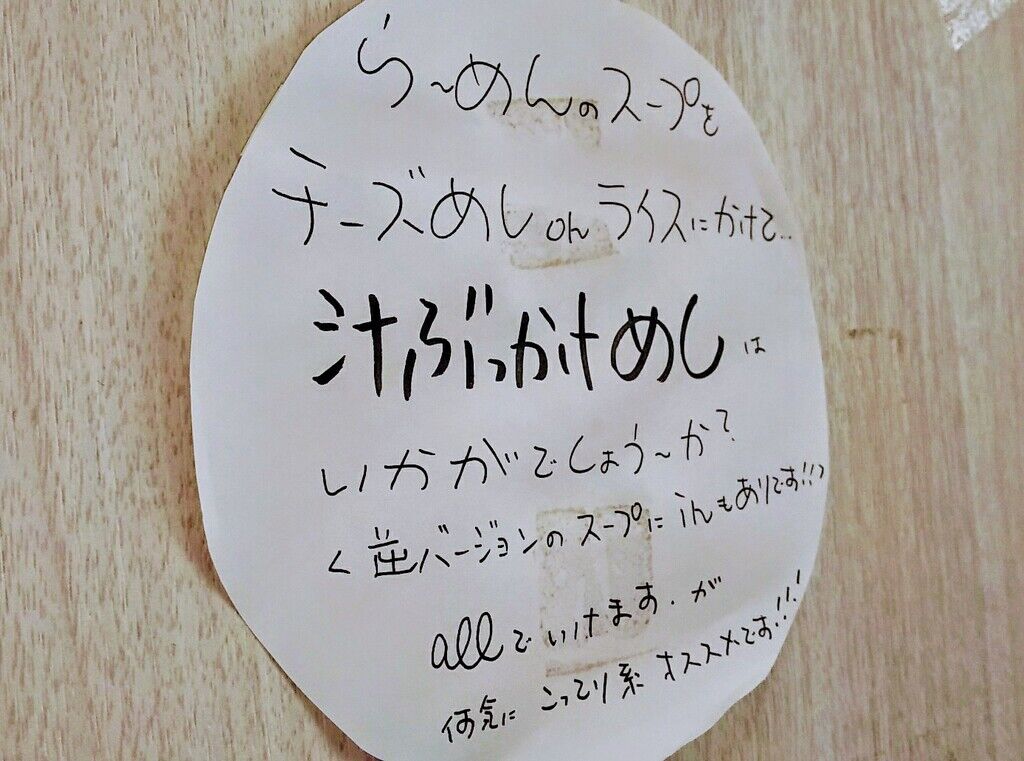 ら〜めんのスープを
チーズめし on ライスにかけて..
汁ぶっかけめしは
いかがでしょう〜か?
<逆バージョンのスープに inもありです!!>
allでいけます.が
何気に こってり系 オススメです!!!